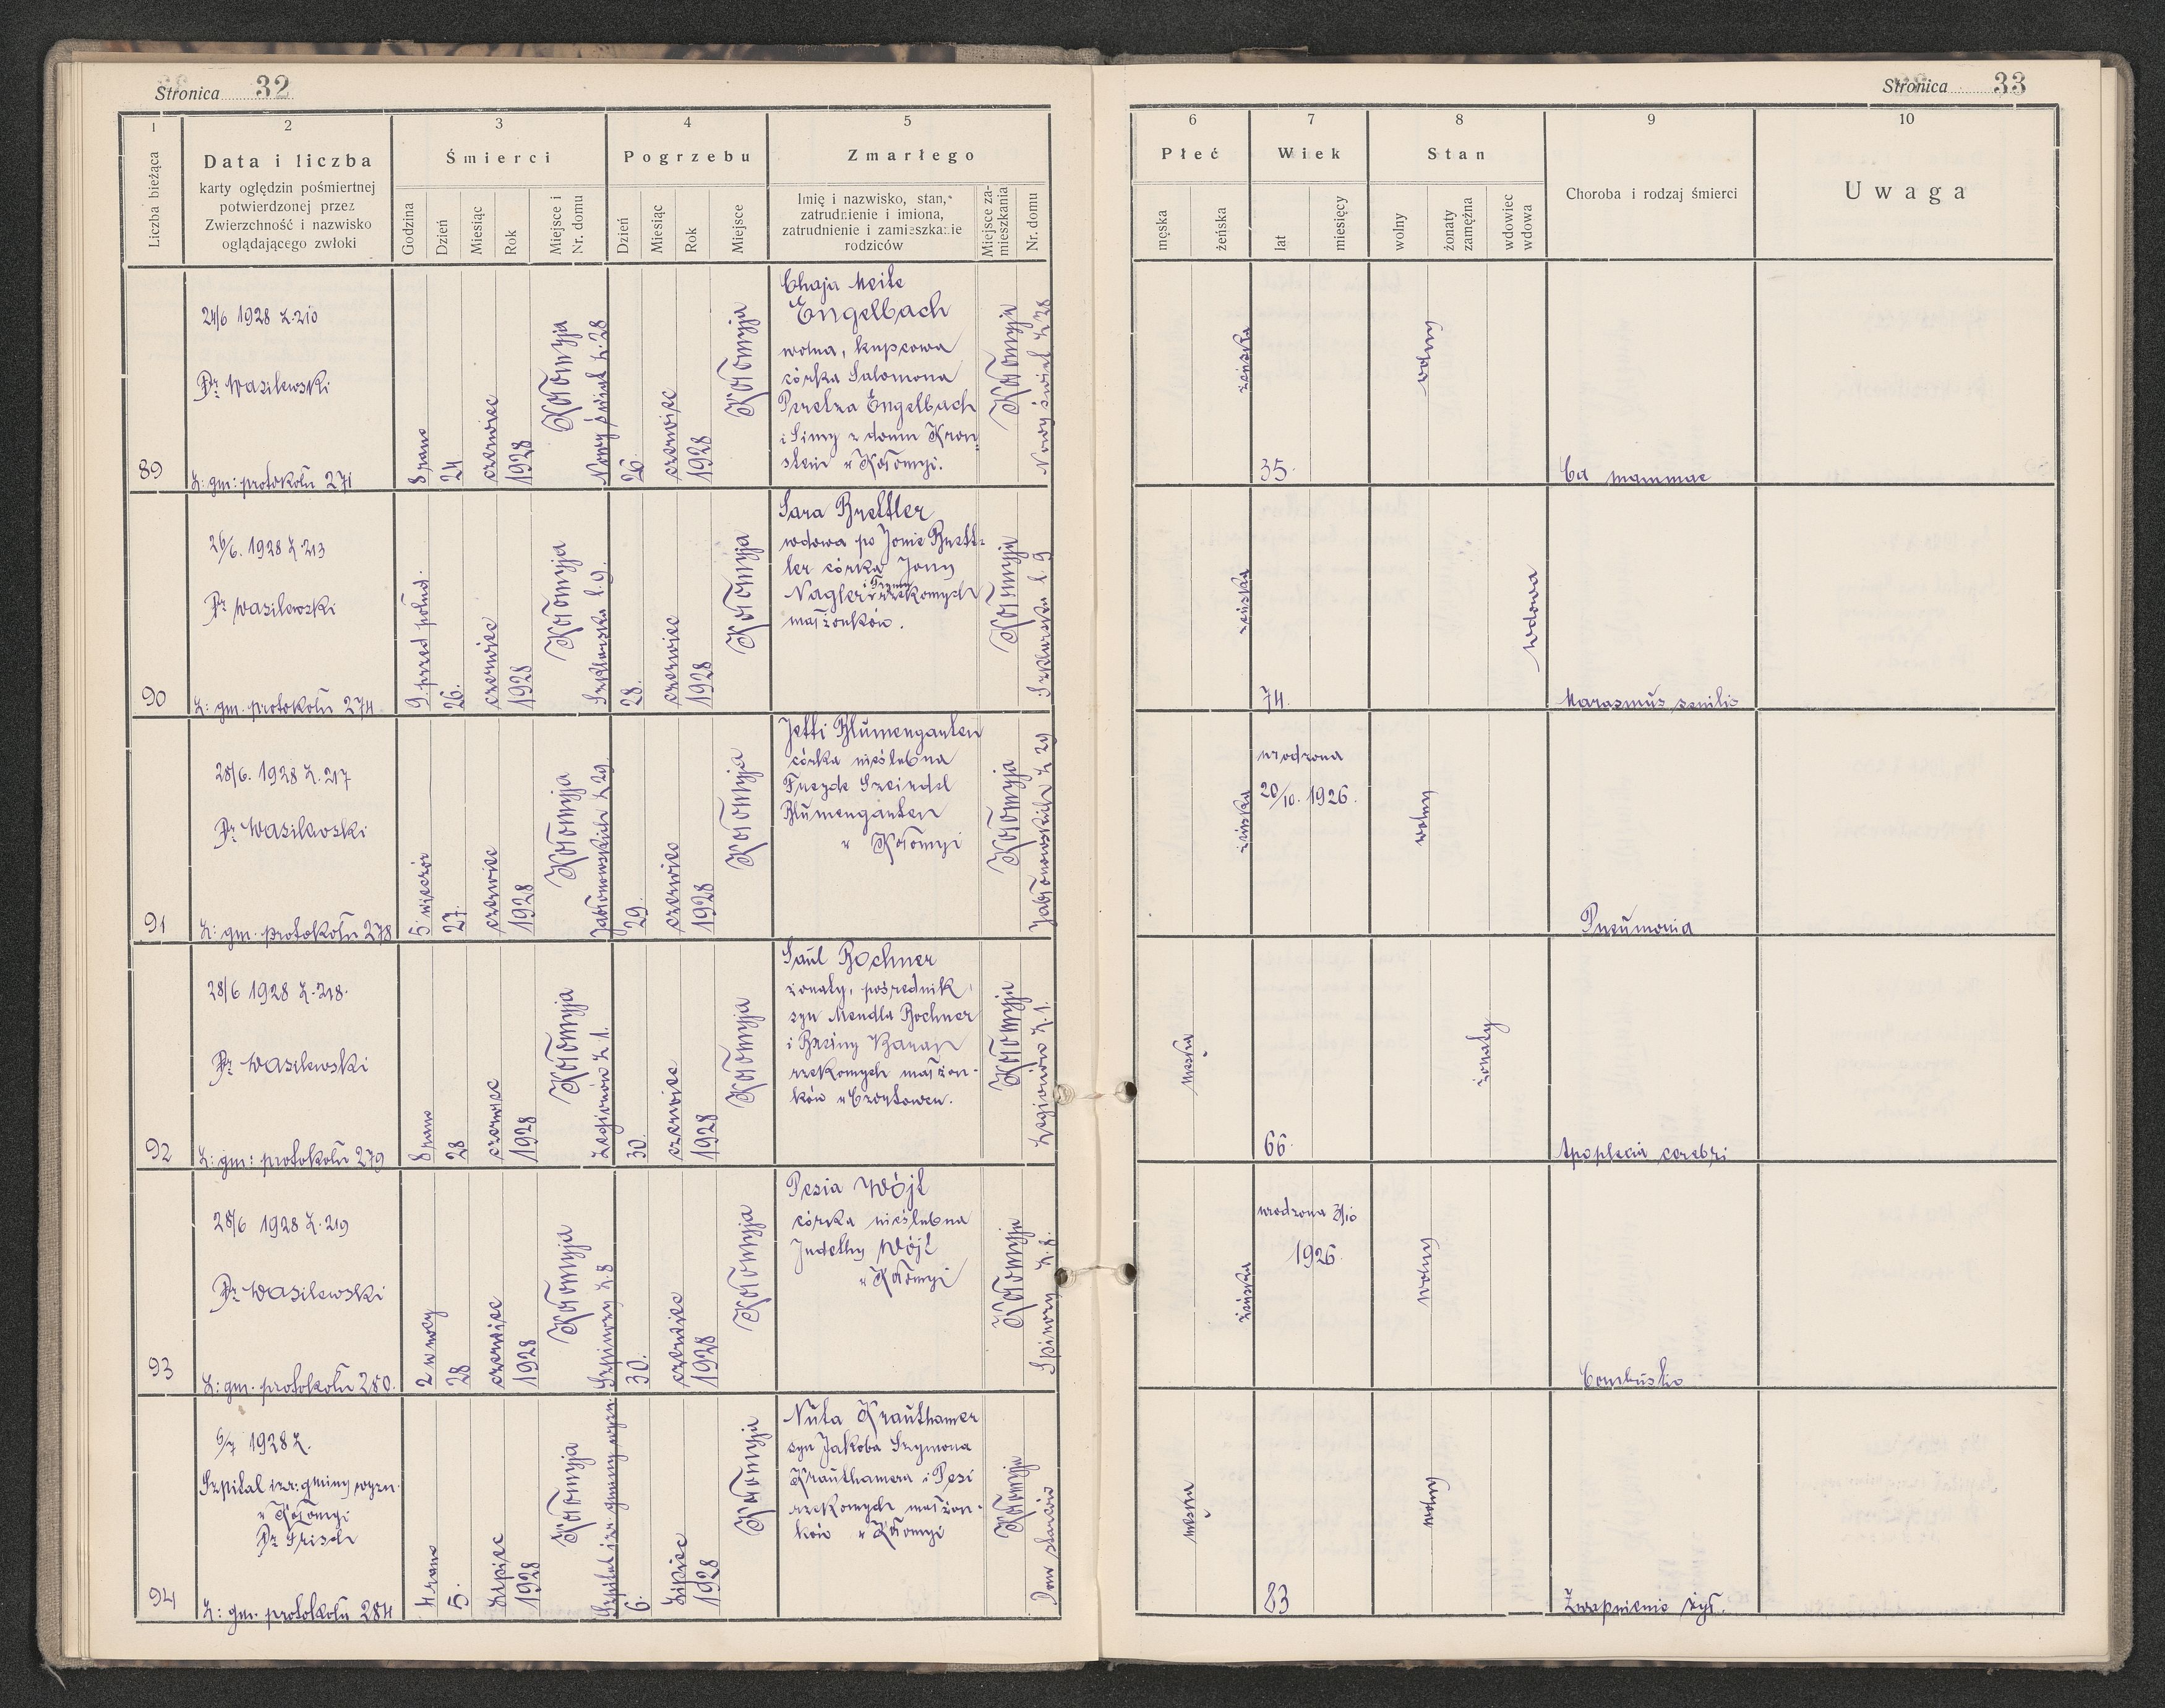 Stronica 32
1 2 3 4 5
Liczba bieżąca
Data i liczba
karty oględzin pośmiertnej
potwierdzonej przez
Zwierzchność i nazwisko
oglądającego zwłoki
Śmierci
Godzina
Dzień
Miesiąc
Rok
Miejsce i
Nr. domu
Pogrzebu
Dzień
Miesiąc
Rok
Miejsce
Zmarłego
Imię i nazwisko, stan,
zatrudnienie i imiona,
zatrudnienie i zamieszkanie
rodziców
Miejsce za-
mieszkania
Nr. domu
89
24/6 1928 L. 210
Dr Wasilewski
L: gm: protokołu 271
8 rano
24
czerwiec
1928
Kołomyja
Nowy świat L. 28
26.
czerwiec
1928
Kołomyja
Chaja Meite
Engelbach
wolna, kupcowa
córka Salomona
Perelza Engelbach
i Simy z domu Kron
stein w Kołomyi.
Kołomyja
Nowy świat L 28
90
26/6. 1928 L. 213
Dr Wasilewski
L: gm. protokołu 274
9 przed połud.
26.
czerwiec
1928
Kołomyja
Szklarska l. 9.
28.
czerwiec
1928
Kołomyja
Sara Brettler
wdowa po Jonie Brett-
ler córka Jony
Nagler i rzekomych
małżonków.
Kołomyja
Szklarska l. 9
91
28/6. 1928 L. 217
Dr Wasilewski
L: gm. protokołu 278
5 wieczór
27.
czerwiec
1928
Kołomyja
Jabłonowskich L 29
29.
czerwiec
1928
Kołomyja
Jetti Blumengarten
córka nieślubna
Freyde Szeindel
Blumengarten
w Kołomyi
Kołomyja
Jabłonowskich L 29
92
28/6 1928 L. 218.
Dr Wasilewski
L: gm: protokołu 279
8 rano
28
czerwiec
1928
Kołomyja
Legionów L. 1.
30.
czerwiec
1928
Kołomyja
Saul Bochner
żonaty, pośrednik
syn Mendla Bochner
i Breiny Baran
rzekomych małżon-
ków w
Kołomyja
Legionów L. 1.
93
28/6 1928 L. 219
Dr Wasilewski
L: gm. protokołu 280.
2 w nocy
28
czerwiec
1928
Kołomyja
L. 8
30.
czerwiec
1928
Kołomyja
Pesia Wójt
córka nieślubna
Judethy Wójt
w Kołomyi
Kołomyja
L. 8.
94
6/7 1928 L.
Szpital izr: gminy wyzn.
w Kołomyi
Dr Frisch
L: gm. protokołu 284
4 rano
5.
Lipiec
1928
Kołomyja
Szpital izr gminy wyzn
6.
Lipiec
1928
Kołomyja
Nuta Krauthamer
syn Jakoba Szymona
Krauthamera i Pesi
rzekomych małżon-
ków w Kołomyi
Kołomyja
Dom starców
Stronica 33
6 7 8 9 10
Płeć
męska
żeńska
Wiek
lat
miesięcy
Stan
wolny
żonaty
zamężna
wdowiec
wdowa
Choroba i rodzaj śmierci
Uwaga
żeńska
35.
wolny
Ca mammae
żeńska
74.
wdowa
Marasmus senilis
żeńska
urodzona
20/10. 1926.
wolny
Pneumonia
męska
66.
żonaty
Apoplecia cerebri
żeńska
urodzona
1926.
wolny
Combustio
męska
83
wolny
Zwapnienie żył.